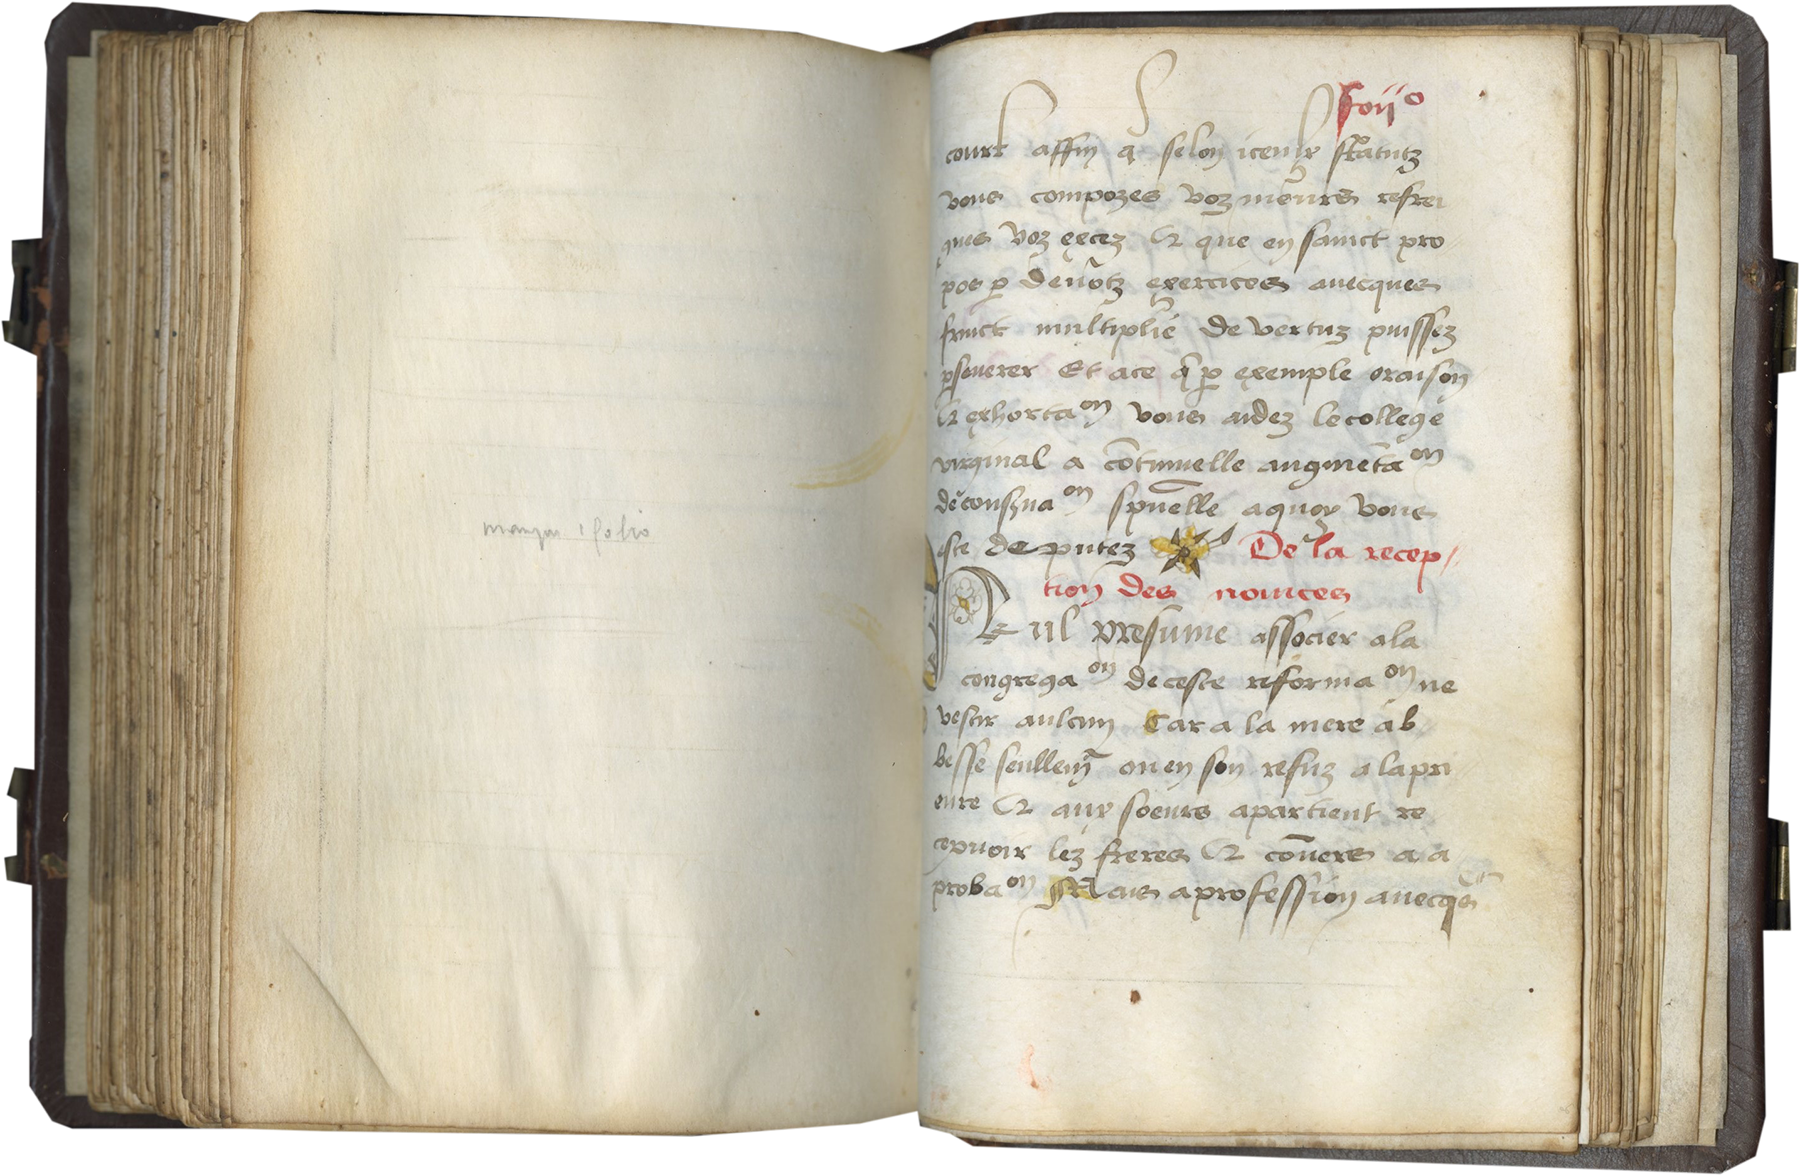 manque 1 folio
fo ii o
court affin q̃ selon iceulx statutz
vous compozes voz meurs refrei
gnes voz excez & que en sainct pro
pos p deuotz exercices auecques
fruict multiplie de vertuz puissez
pseuerer Et ace q̃ p exemple oraison
& exhortaon vous aidez le college
virginal a cõtinuelle augmẽtaon
de conßuaon spũelle a quoy vous
este deputez De la recep//
tion des nouices
Nul presume associer a la
congregaon de ceste reformaon ne
vestir aulcun Car a la mere ab
besse seullemt̃ ou en son refuz a la pri
eure & aux soeurs apartient re
cepuoir lez freres & cõuers a a
probaon Mais a profession auecqs